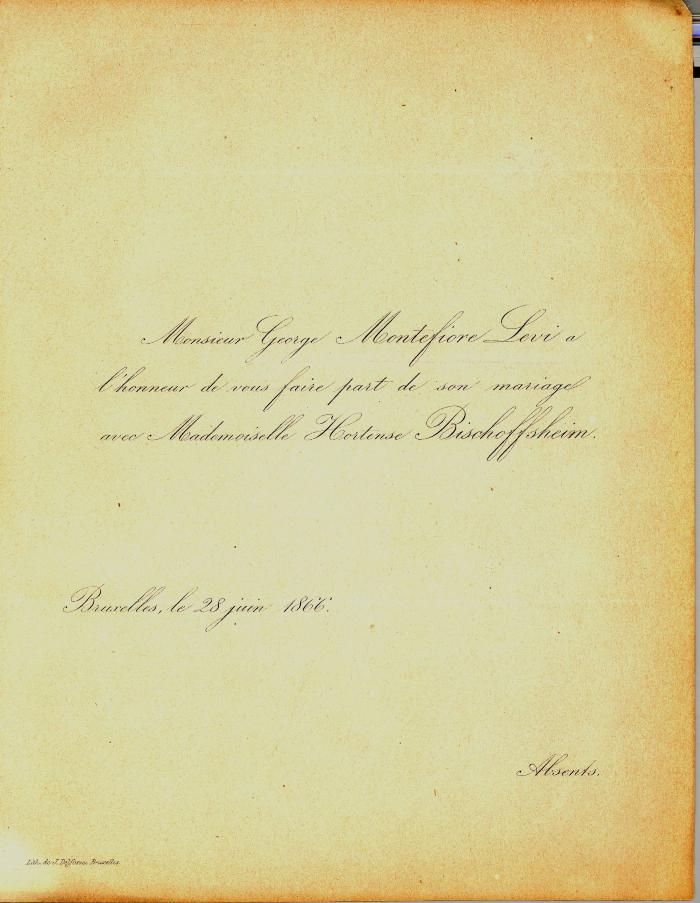 Monsieur George Montefiore Levi a
l'honneur de vous faire part de son mariage
avec Mademoiselle Hortense Bischoffsheim.
Bruxelles, le 28 juin 1866.
Absents.
Lith. de J. Bruxelles.